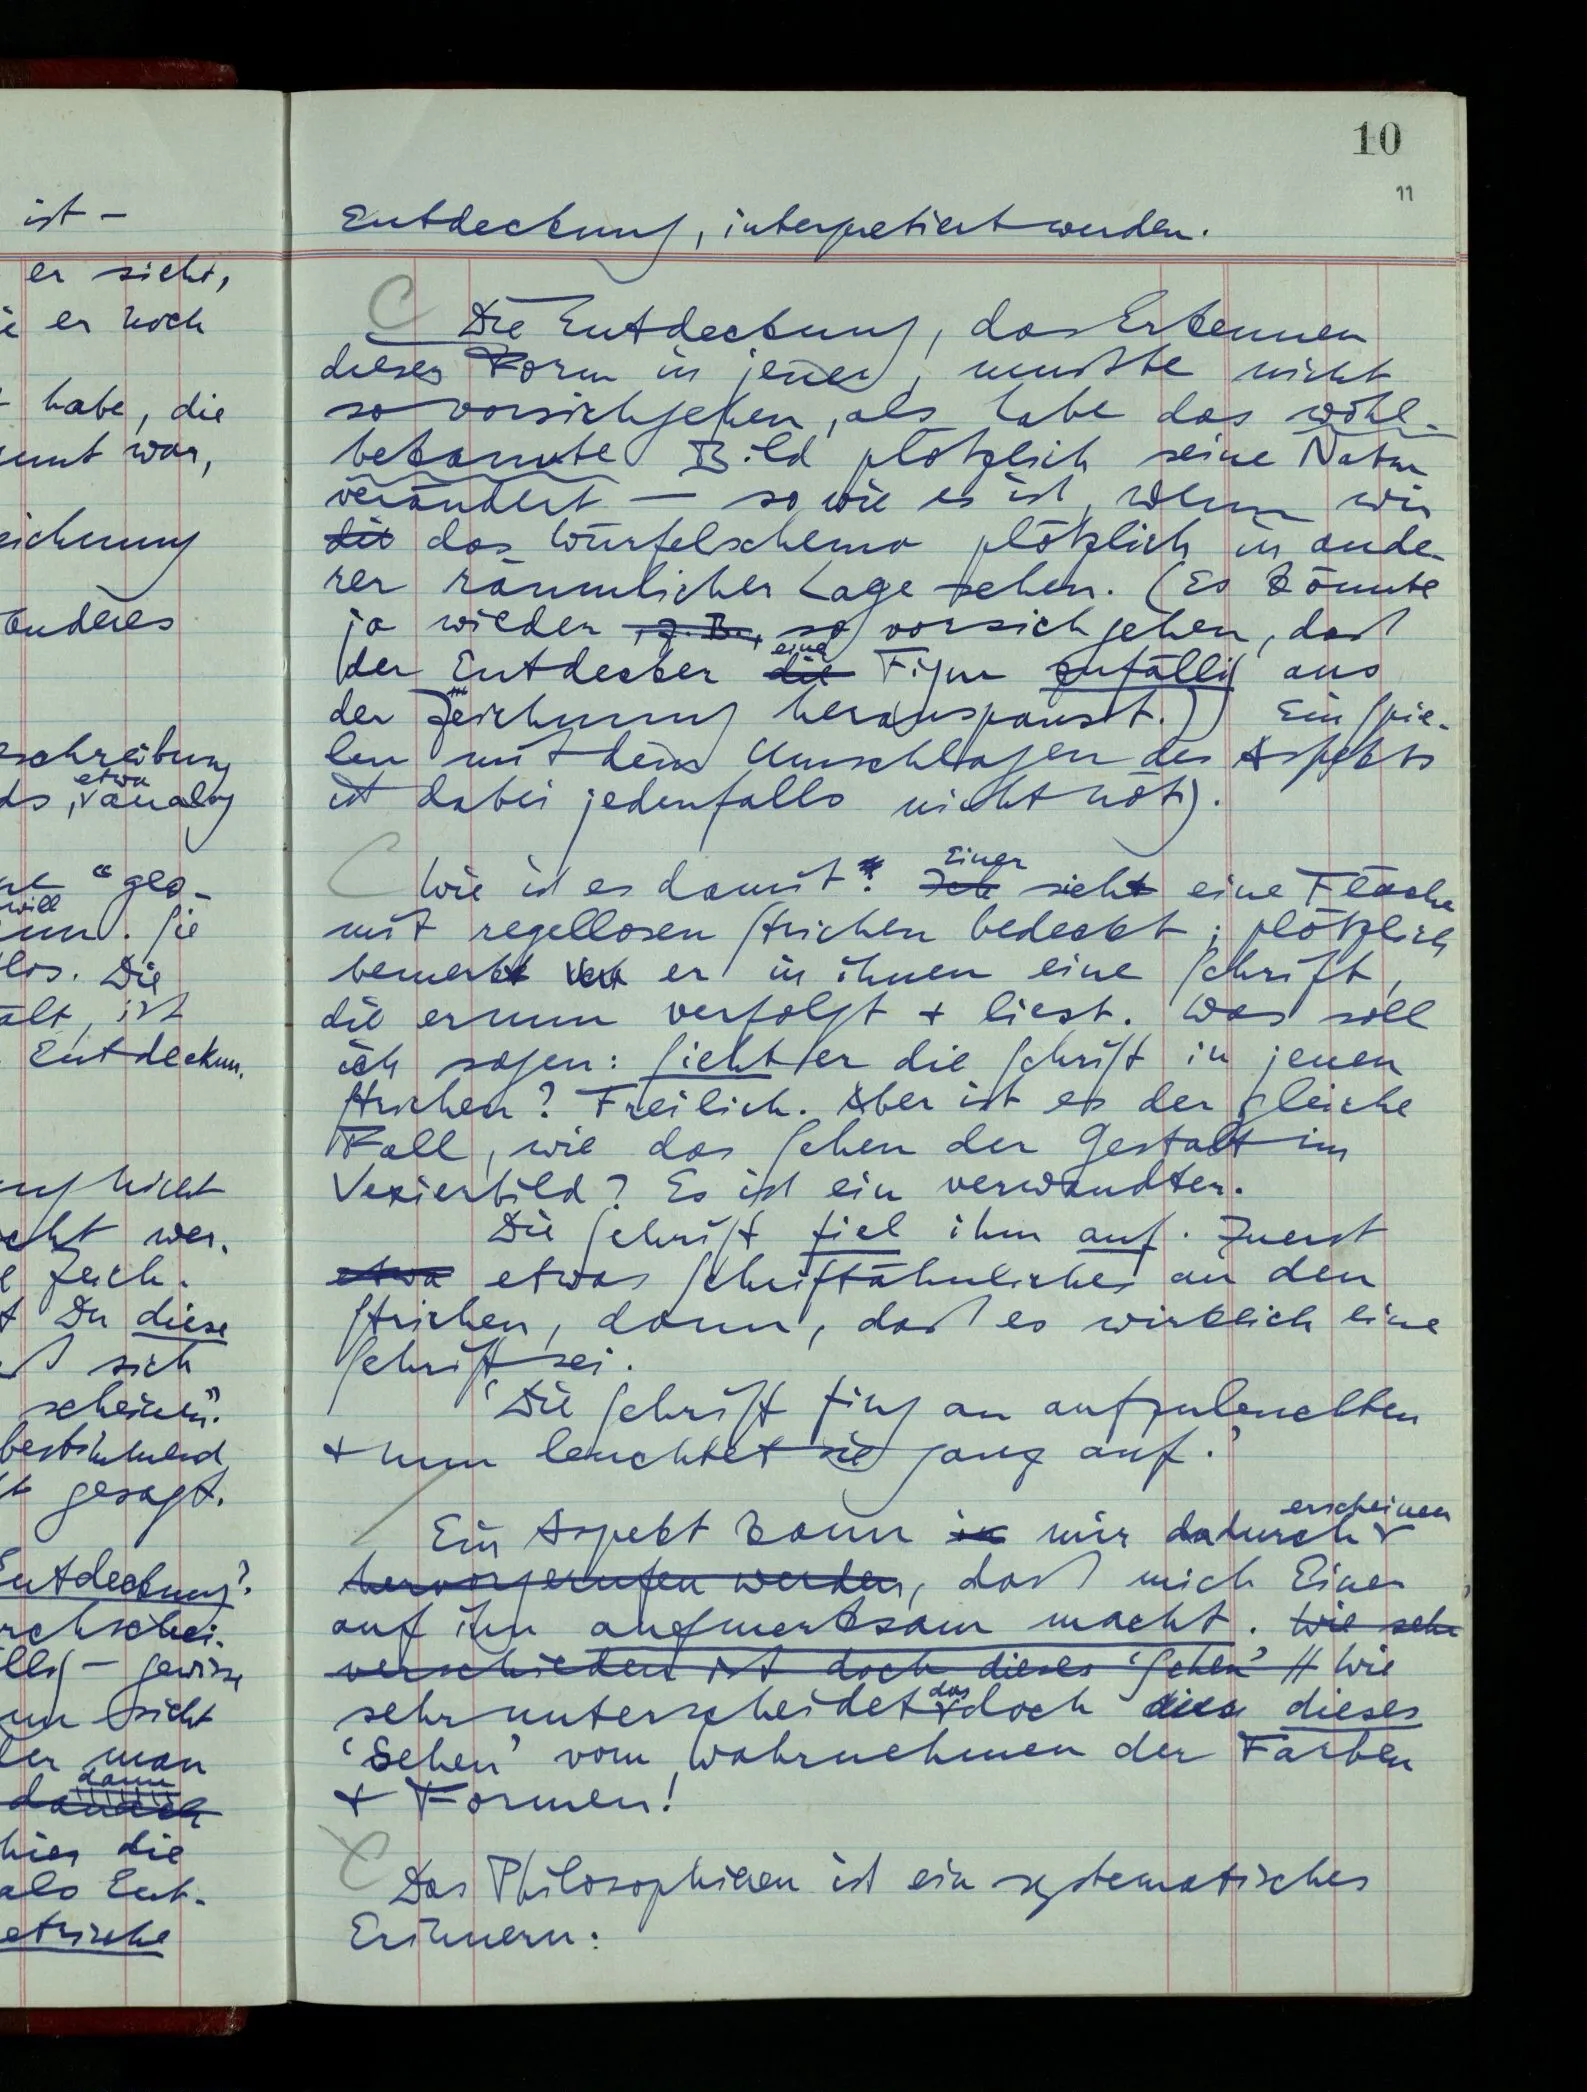 10
11
ist –
er sieht,
er noch
habe, die
war,
eichnung
anderes
eschreibung
etwa
analog
"geo-
will
Sie
los. Die
ält, ist
Entdeckun.
nicht
wer.
Zeich.
Du diese
sich
scheinen".
bestimmend
gesagt.
Entdeckung?
rchschei-
– gewisse
sieht
man
dann
danach
hier die
als Ent-
etrische
Entdeckung, interpretiert werden.
C Die Entdeckung, das Erkennen
dieser Form in jener, musste nicht
so vorsichgehen, als habe das wohl-
bekannte Bild plötzlich seine Natur
verändert — so wie es ist, wenn wir
die das Würfelschema plötzlich in ande-
rer räumlicher Lage sehen. (Es könnte
ja wieder, z. B., so vorsichgehen, daß
eine
der Entdecker die Figur zufällig aus
der Zeichnung herauspaust.) Ein Spie-
len mit dem Umschlagen des Aspekts
ist dabei jedenfalls nicht nötig.
Einer
C Wie ist es damit: Ich sieht eine Fläche
mit regellosen Strichen bedeckt; plötzlich
bemerkt er in ihnen eine Schrift,
die er nun verfolgt + liest. Was soll
ich sagen: Sieht er die Schrift in jenen
Strichen? Freilich. Aber ist es der gleiche
Fall, wie das Sehen der Gestalt im
Vexierbild? Es ist ein verwandter.
Die Schrift fiel ihm auf. Zuerst
etwa etwas Schriftähnliches an den
Strichen, dann, daß es wirklich eine
Schrift sei.
'Die Schrift fing an aufzuleuchten
+ nun leuchtet sie ganz auf.'
erscheinen
/ Ein Aspekt kann mir dadurch
hervorgerufen werden, daß mich Einer
auf ihn aufmerksam macht. Wie sehr
verschieden ist doch dieses 'Sehen' // Wie
das
sehr unterscheidet doch dieses
'Sehen' vom Wahrnehmen der Farben
+ Formen!
C Das Philosophieren ist ein systematisches
Erinnern: